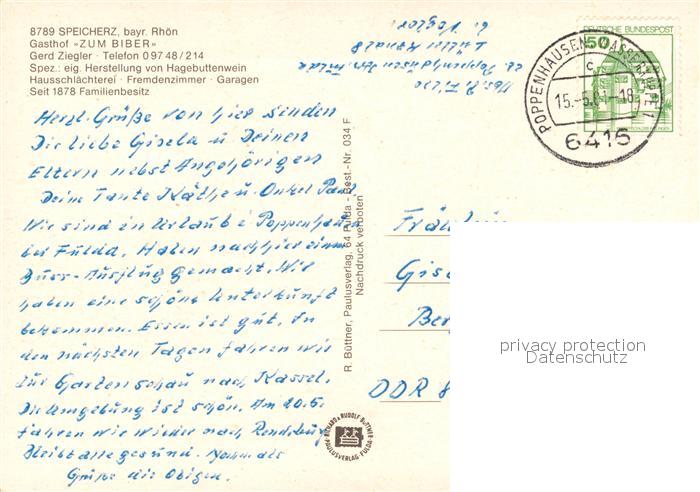 8789 SPEICHERZ, bayr. Rhön
Gasthof »ZUM BIBER«
Gerd Ziegler · Telefon 0 97 48 / 214
Spez.: eig. Herstellung von Hagebuttenwein
Hausschlächterei · Fremdenzimmer · Garagen
Seit 1878 Familienbesitz
Herzl. Grüße von hier senden
Dir liebe Gisela u Deinen
Eltern nebst Angehörigen
Deine Tante Käthe u. Onkel Paul
Wir sind in Urlaub i Poppenhausen
bei Fulda. Haben nach hier einen
Ausflug gemacht. Wir
haben eine schöne Unterkunft
bekommen. Essen ist gut. In
den nächsten Tagen fahren wir
zur Gartenschau nach Kassel.
Die Umgebung ist schön. Am 20.6.
fahren wir wieder nach Rendsburg
Bleibt alle gesund. Nochmals
Grüße die Obigen.
R. Büttner, Paulusverlag, 64 Fulda - Best.-Nr. 034 F
Nachdruck verboten
RICHARD & RUDOLF BÜTTNER
PAULUSVERLAG · FULDA
DEUTSCHE BUNDESPOST
50
POPPENHAUSEN WASSERKUPPE 1
c
15.-6.81-18
6416
Gis
Ber
DDR 8
privacy protection
Datenschutz